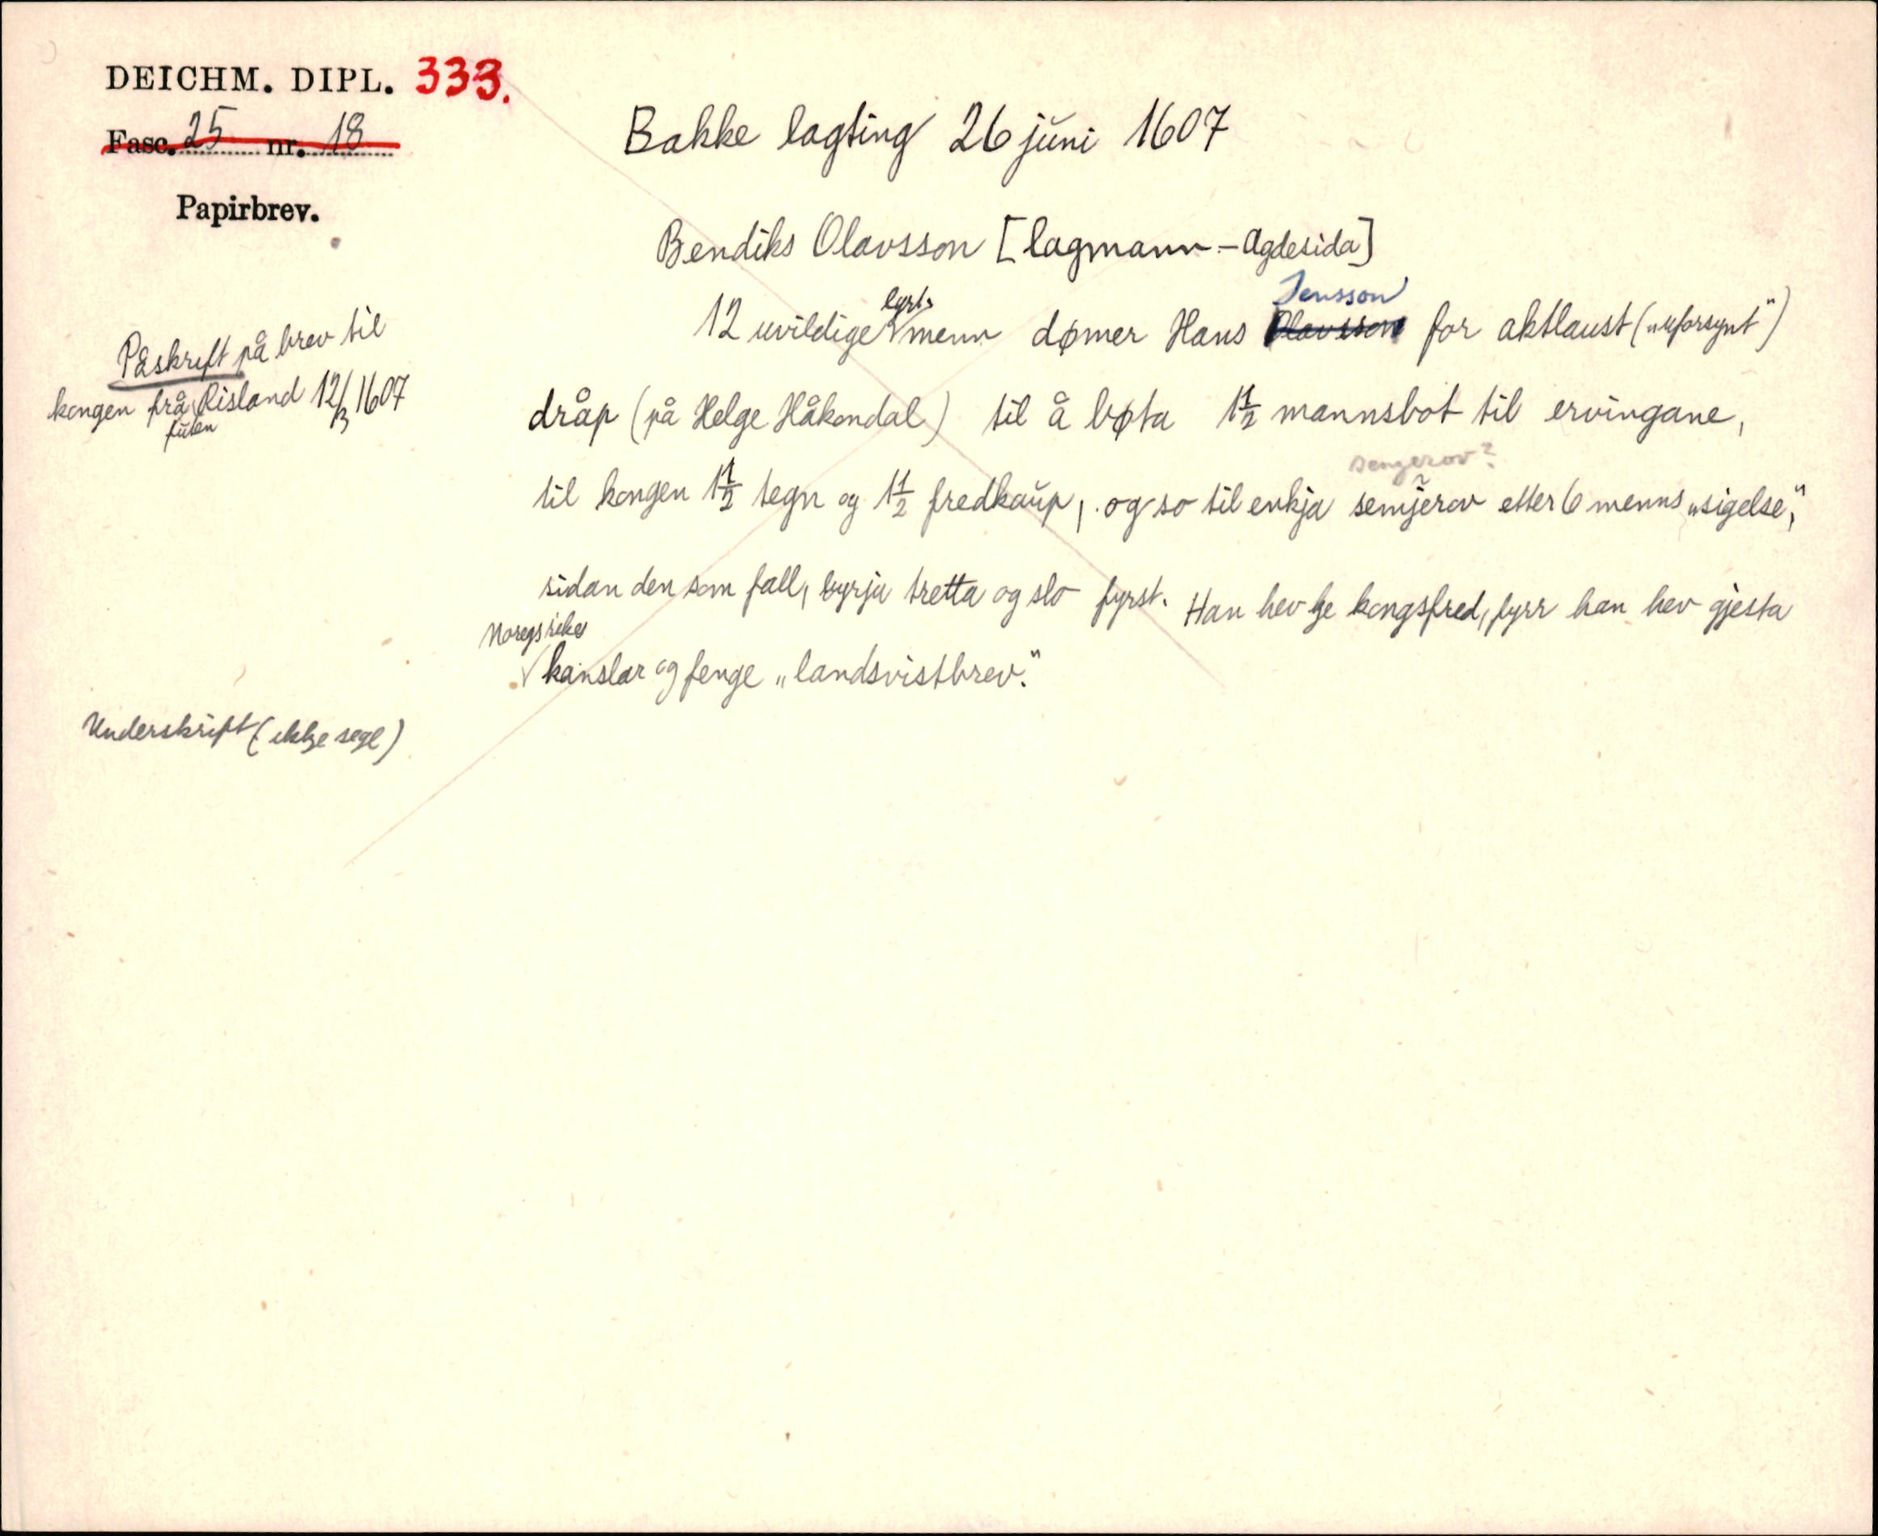 DEICHM. DIPL. 333.
Fasc. 25 nr. 18
Papirbrev.
Bakke lagting 26 juni 1607
Bendiks Olavsson [lagmann - Agdesida]
Påskrift på brev til
kongen frå futen Risland 12/3 1607
12 uvildige lgrt. menn dømer Hans Olavsson Jensson for aktlaust („uforsynt“)
dråp (på Helge Håkondal) til å bøta 1 1/2 mannsbot til ervingane,
til kongen 1 1/2 tegn og 1 1/2 fredkaup, og so til enkja semjerov sengerov? etter 6 menns „sigelse“,
sidan den som fall, byrja tretta og slo fyrst. Han hev kje kongsfred, fyrr han hev gjesta
Noregs rikes kanslar og fenge „landsvistbrev.“
Underskrift (ikkje segl)